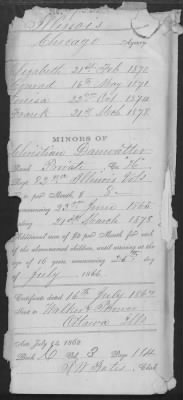 Illinois
Chicago Agency
Elizabeth 21st Feb 1870
Edward 16th May 1870
Louisa 22nd Oct 1874
Frank 21st Mch 1878
MINORS OF
Christian
Rank Private Co. "K"
Regt 82nd Illinois Vols
per Month $ 8
commencing 23rd June 1865
ending 21st March 1878
Additional sum of $2 per month for each
of the abovenamed children, until arriving at the
age of 16 years commencing 25th of
July 1866
Certificate dated 16th July 1867
Sent to Walker &
Ottawa Ills
Act July 14 1862
Book Vol. 3 Page 114
Clerk